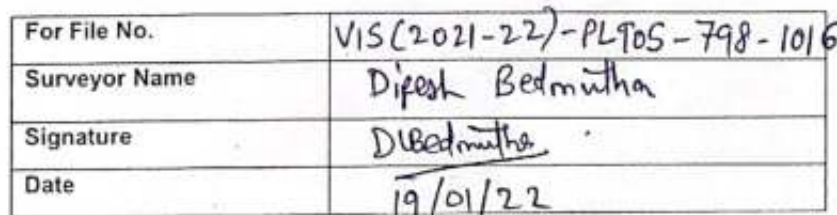 For File No. VIS(2021-22)-PL705-798-1016
Surveyor Name Dipesh Bedmutha
Signature DLBedmutha
Date 19/01/22